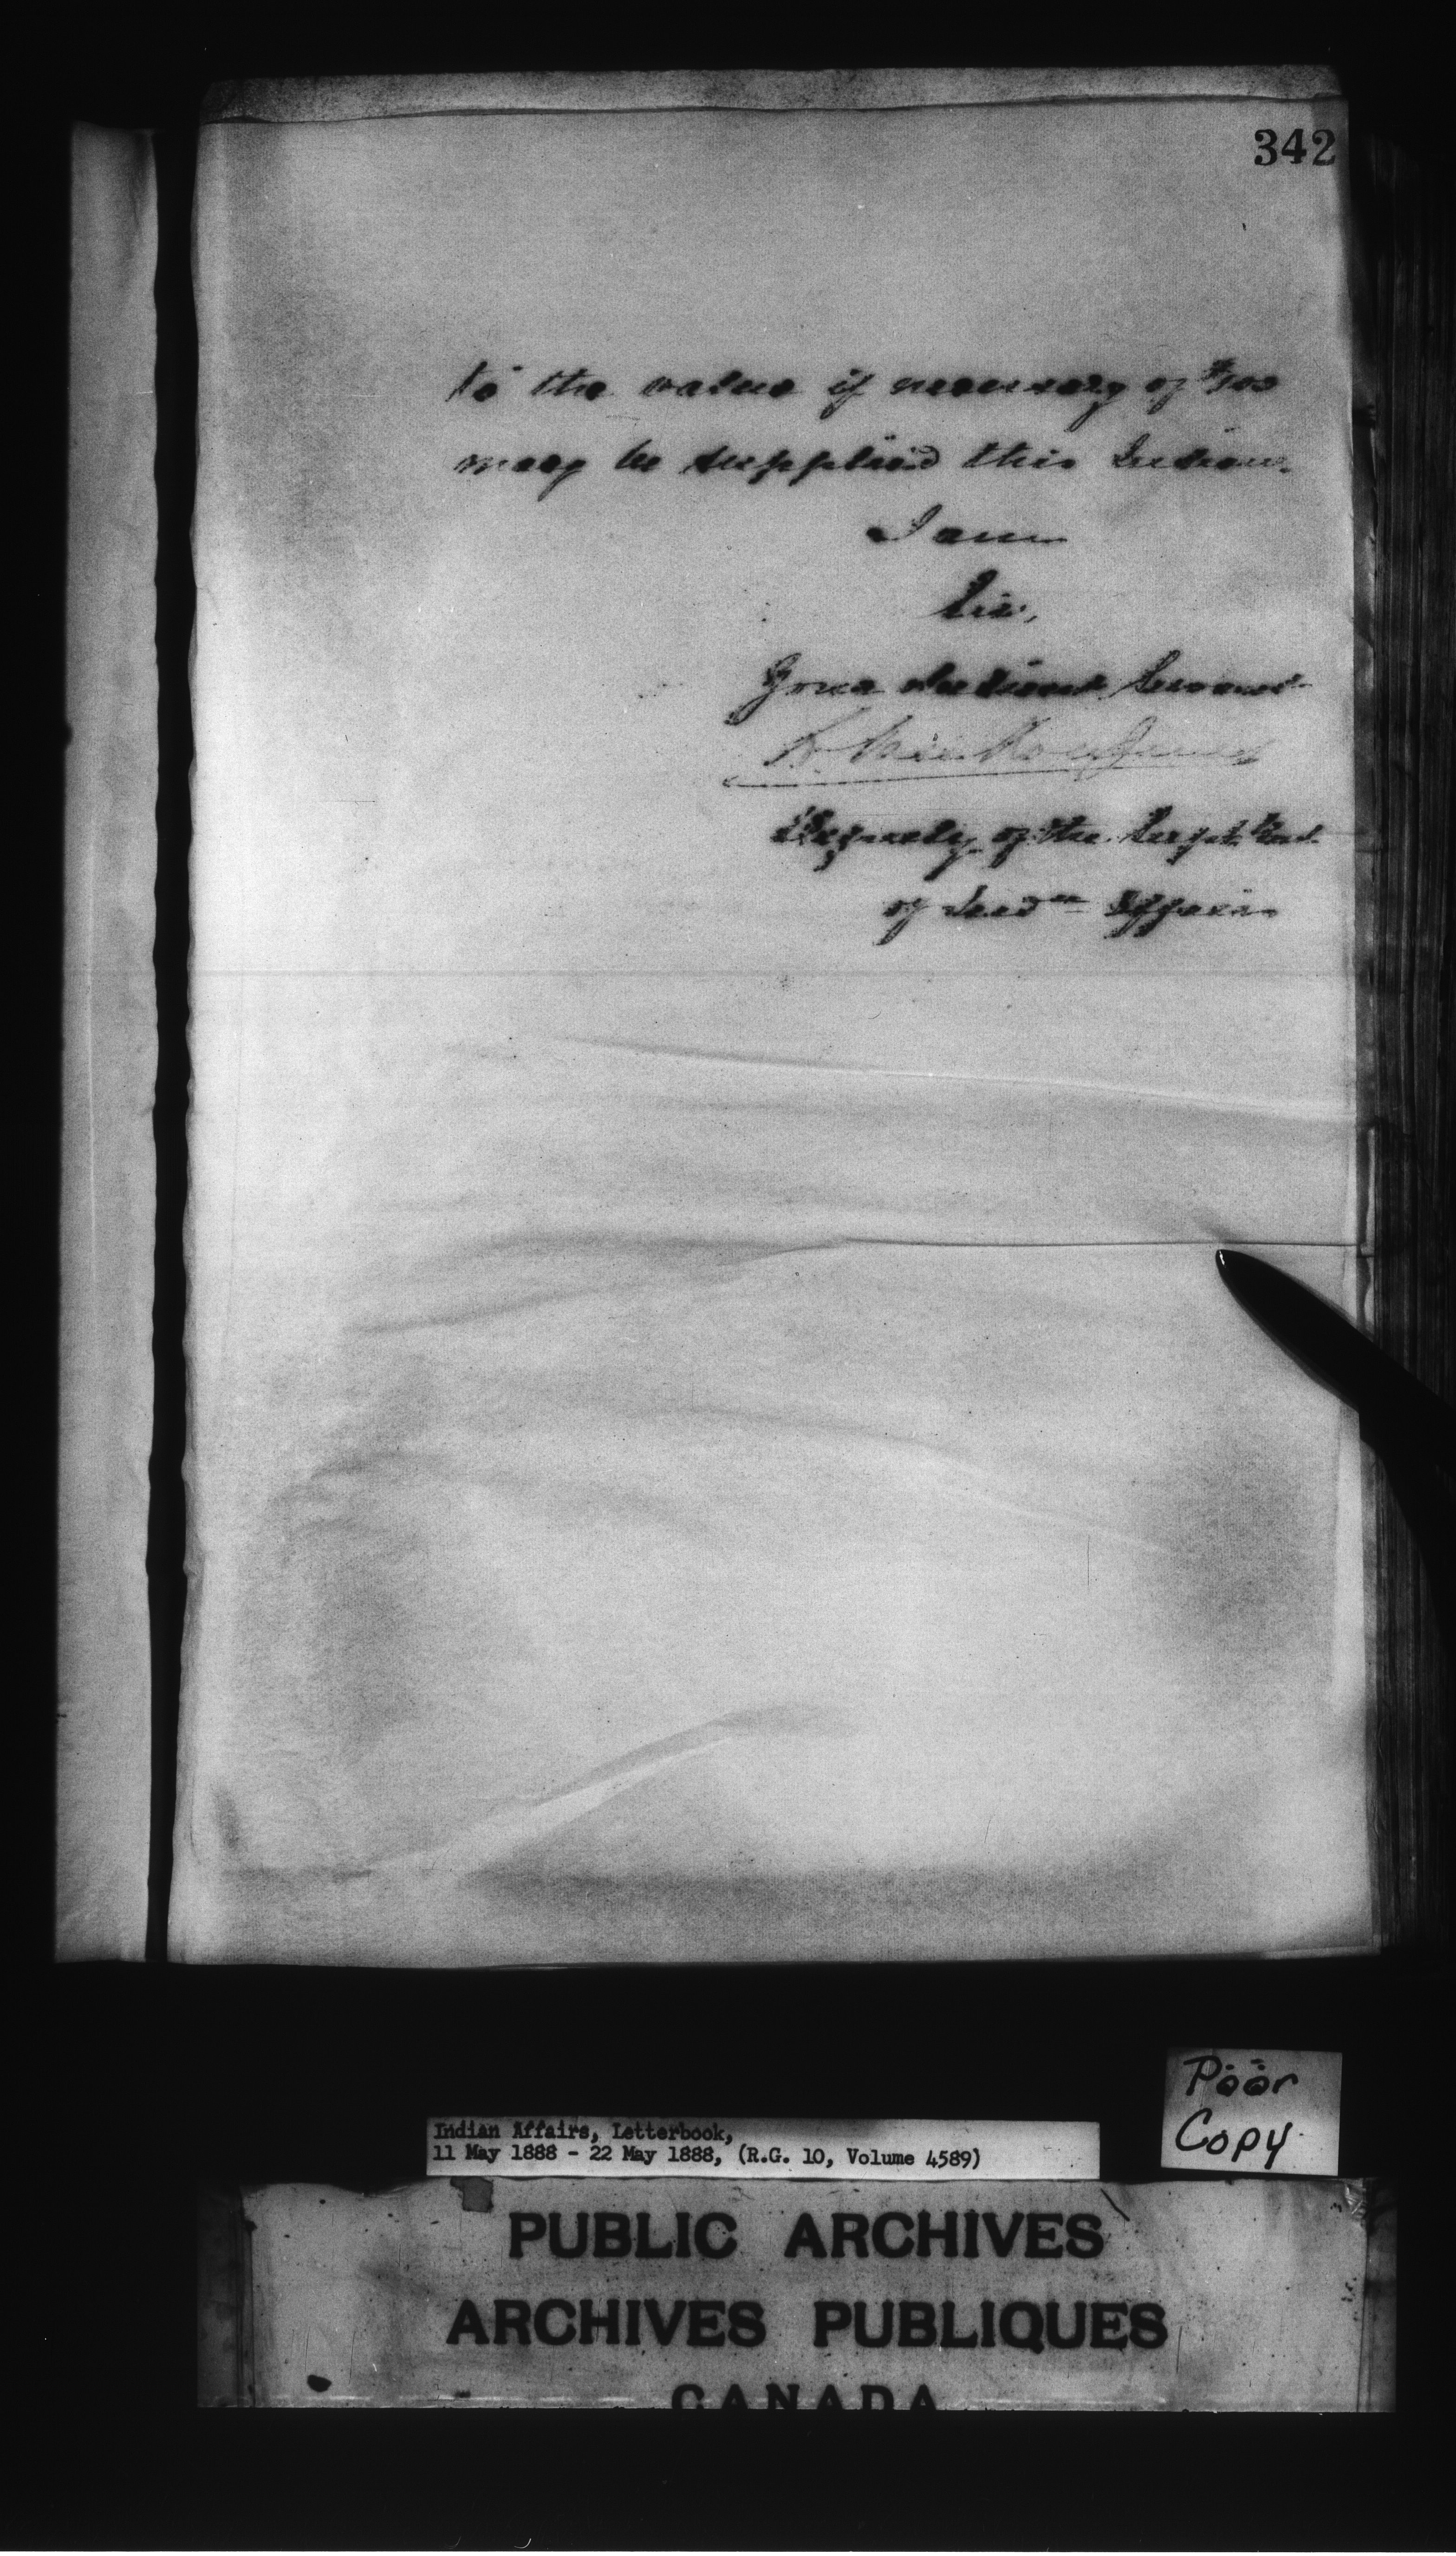 342
to the value if necessary of
may be supplied this Indian.
I am
Sir,
Your obedient Servant
Deputy of the Supt. Genl.
of Indn Affairs
Poor
Copy.
Indian Affairs, Letterbook,
11 May 1888 - 22 May 1888, (R.G. 10, Volume 4589)
PUBLIC ARCHIVES
ARCHIVES PUBLIQUES
CANADA